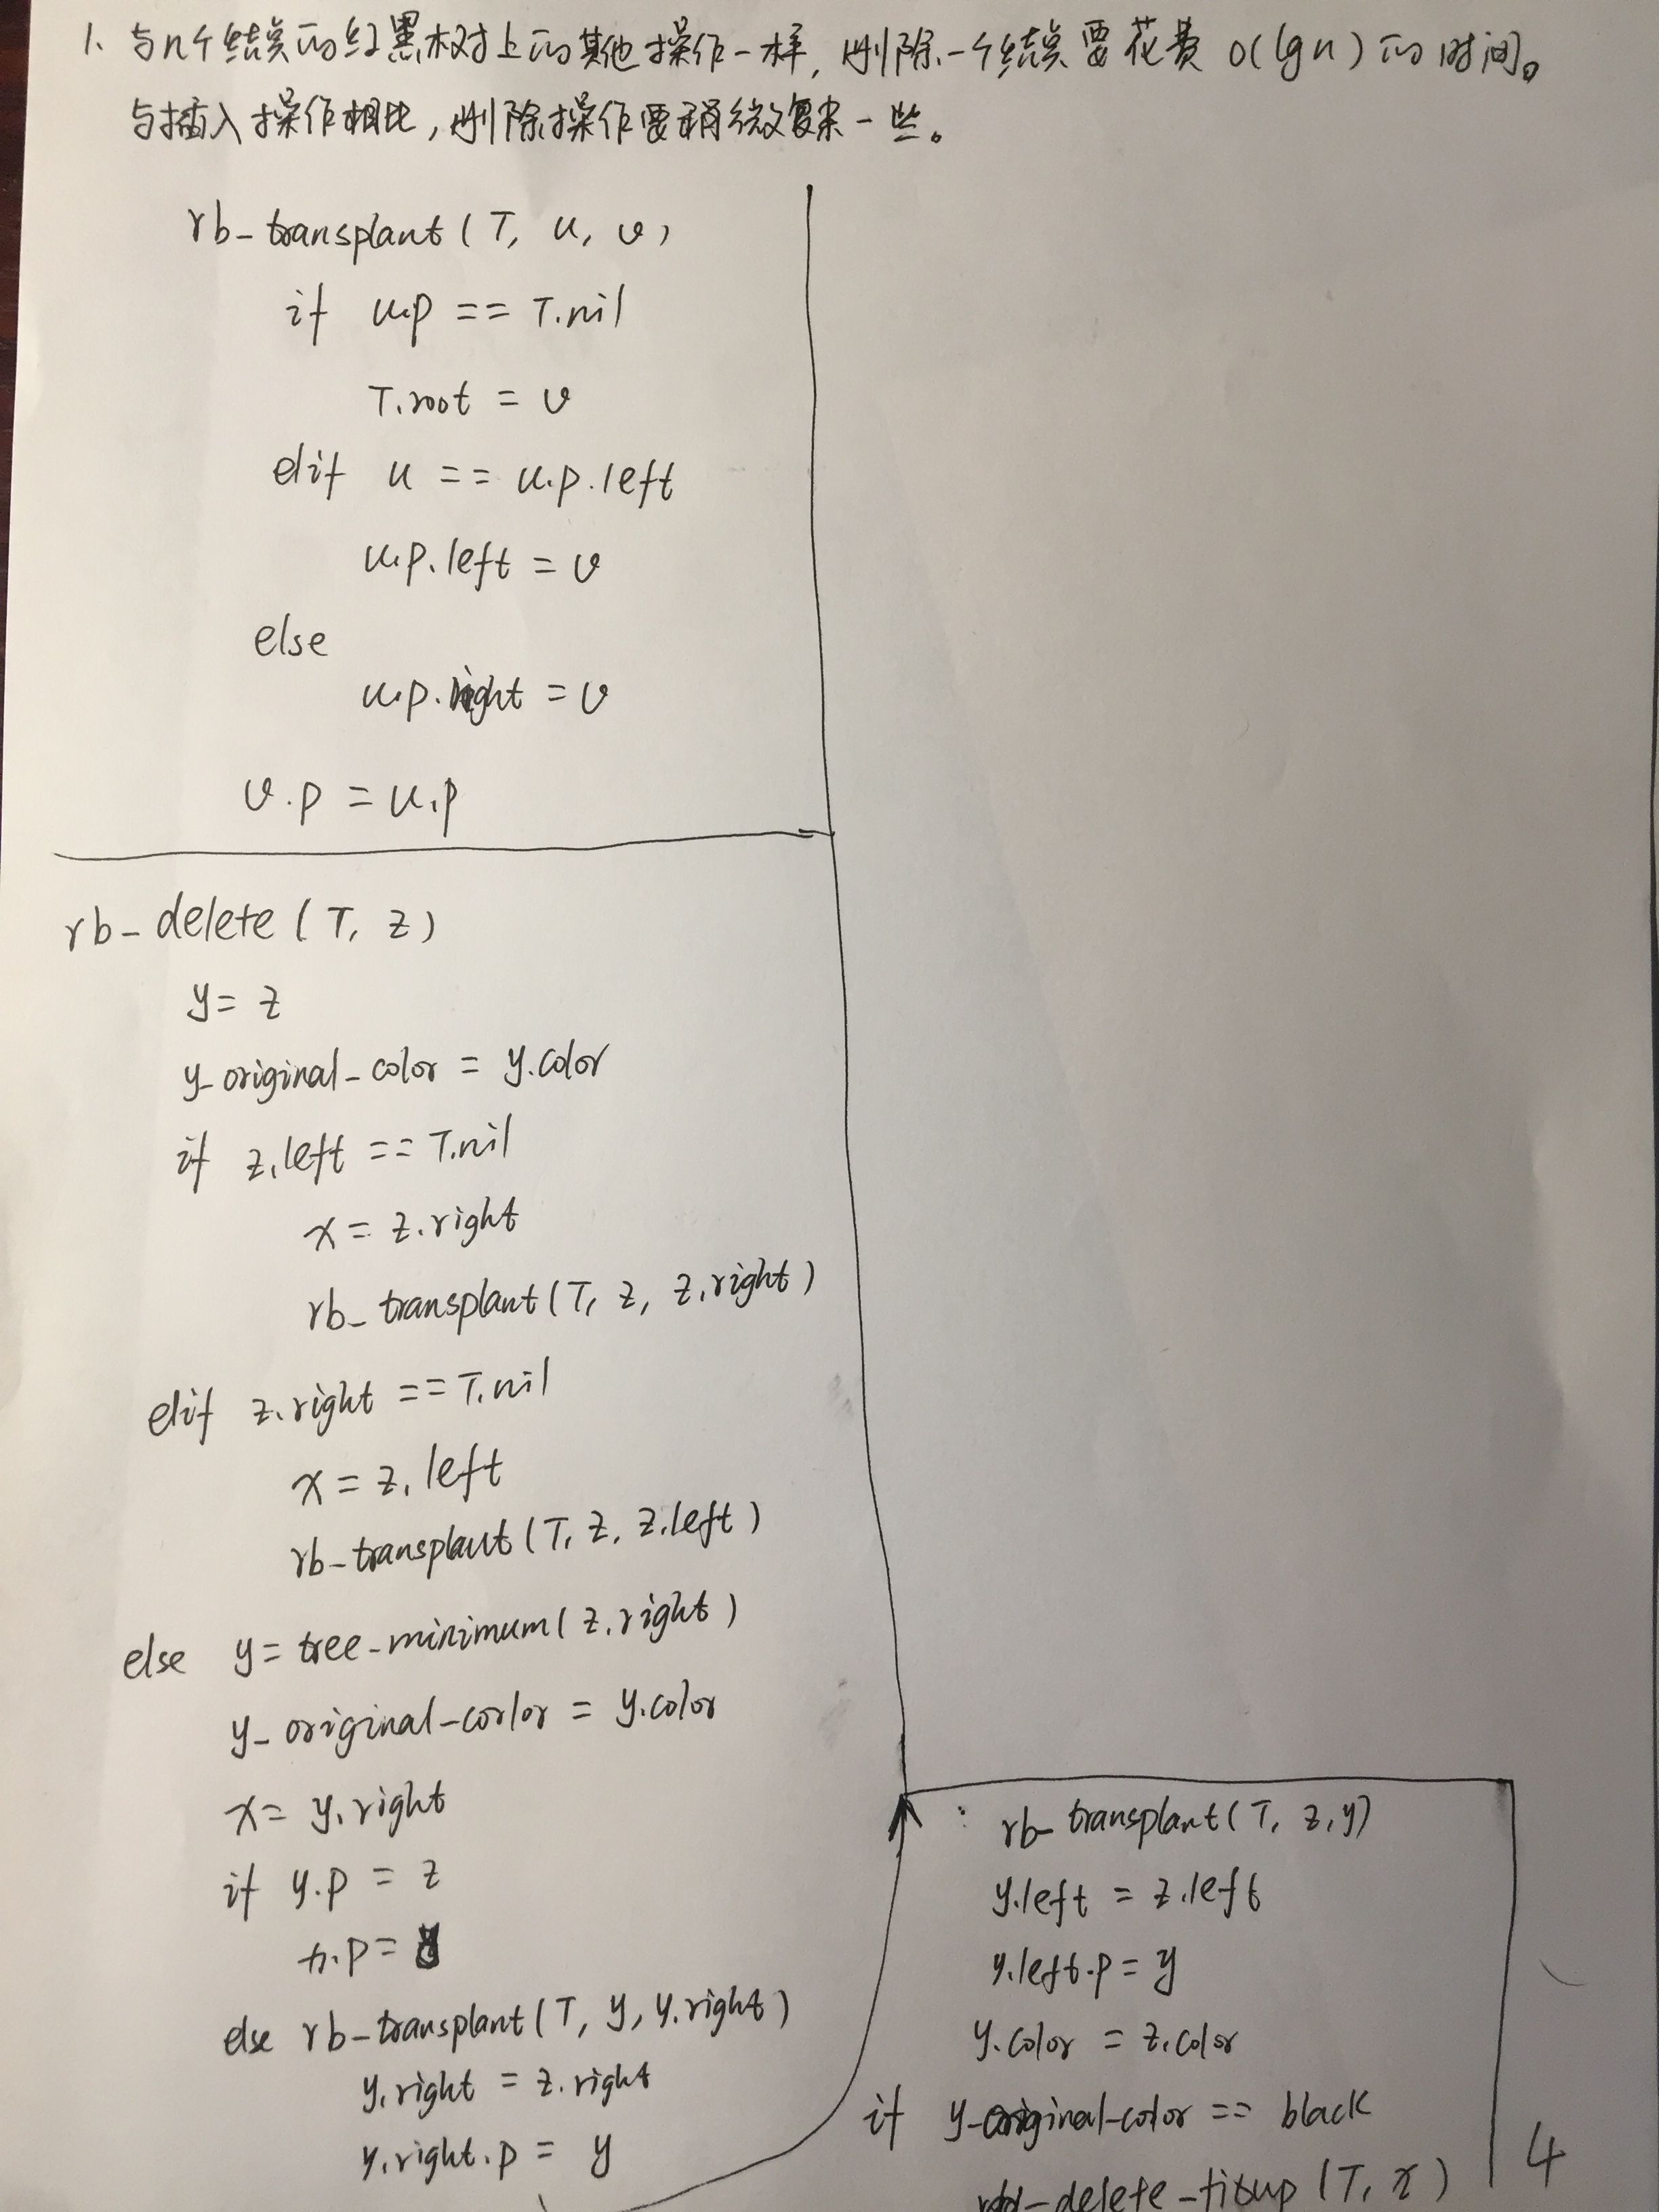 1. 与n个结点的红黑树上的其他操作一样, 删除一个结点要花费 O(lgn) 的时间。
与插入操作相比, 删除操作要稍微复杂一些。
rb-transplant(T, u, v)
if u.p == T.nil
T.root = v
elif u == u.p.left
u.p.left = v
else
u.p.right = v
v.p = u.p
rb-delete(T, z)
y = z
y-original-color = y.color
if z.left == T.nil
x = z.right
rb-transplant(T, z, z.right)
elif z.right == T.nil
x = z.left
rb-transplant(T, z, z.left)
else y = tree-minimum(z.right)
y-original-corlor = y.color
x = y.right
if y.p = z
x.p = y
else rb-transplant(T, y, y.right)
y.right = z.right
y.right.p = y
rb-transplant(T, z, y)
y.left = z.left
y.left.p = y
y.color = z.color
if y-original-color == black
rb-delete-fixup(T, x)
4